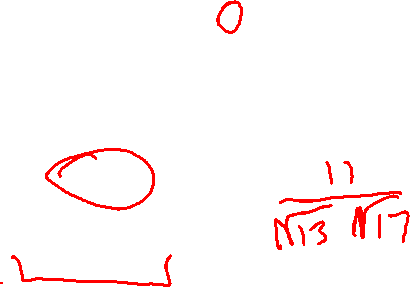 0
11
√13 √17